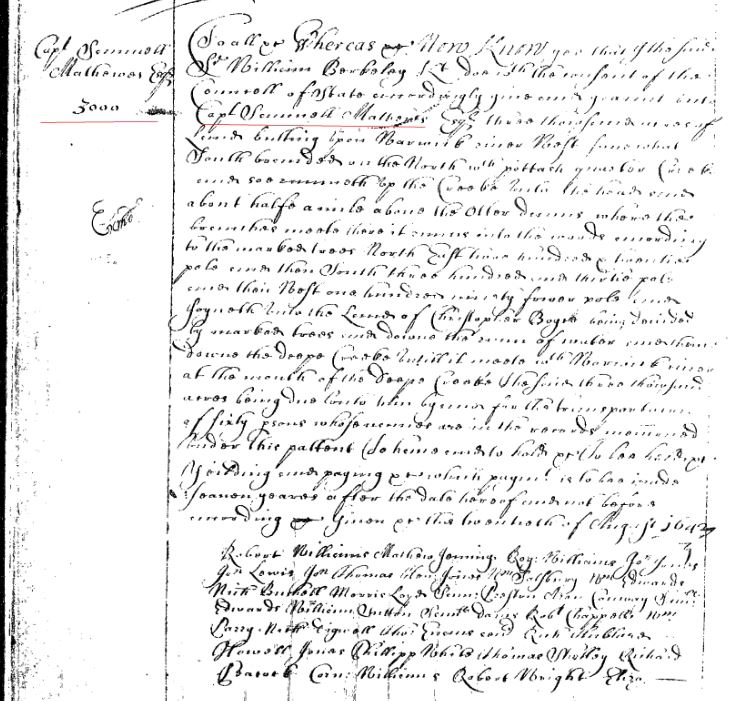 Capt Samuell
Mathewes Esqr
3000
To all &c Whereas &c Now Know yee that I the said
Sr William Berkeley Kt doe with the consent of the
Councell of State accordingly give and graunt unto
Capt Samuell Mathewes Esqr three thousand acres of
Land butting upon Warwick river West somewhat
South bounded on the North wth pottash quarter Creeke
and soe runneth up the Creeke unto the head and
about halfe a mile above the Otter dams where the
branches meete there it runns into the woods according
to the marked trees North East three hundred & twentie
pole and then South three hundred and thirtie pole
and then West one hundred ninety fower pole and
Joyneth unto the Land of Christopher Boyse being devided
by marked trees and downe the runn of water and then
downe the deepe Creeke untill it meets wth Warwick river
at the mouth of the deepe Creeke the said three thousand
acres being due unto him by and for the transportacon
of sixty psons whose names are in the records menconed
under this pattent To have and to hold &c To bee held &c
Yeilding and paying &c which paymt is to bee made
seaven yeares after the date hereof and not before
according &c Given &c the twentieth of August 1643
Robert Williams Mathew Jennings Rog: Williams Jon Jones
Jon Lewis Jon Thomas Jones Wm Salsbury Wm Edwards
Nich Morris Loyd Preston Ann Conway
Edwards William Sutton Saml Davis Robt Chappell Wm
Parry Nich Evans Rich
Howell Jones Phillipp White Thomas Richard
Peacock Corn: Williams Robert Wright Eliza